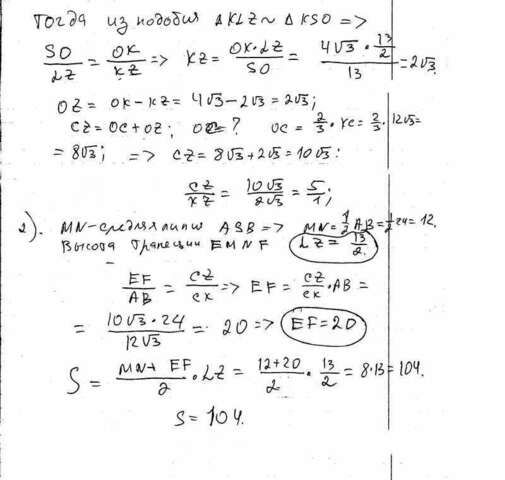 Тогда из подобия ΔKLZ ~ ΔKSO =>
SO/LZ = OK/KZ => KZ = OK·LZ/SO = 4√3 · 13/2 / 13 = 2√3.
OZ = OK - KZ = 4√3 - 2√3 = 2√3;
CZ = OC + OZ; OC = ? OC = 2/3 · KC = 2/3 · 12√3 =
= 8√3; => CZ = 8√3 + 2√3 = 10√3:
CZ/KZ = 10√3/2√3 = 5/1;
2). MN - средняя линия ASB => MN = 1/2 AB = 1/2 24 = 12.
Высота трапеции EMNF LZ = 13/2.
EF/AB = CZ/CK => EF = CZ/CK · AB =
= 10√3 · 24/12√3 = 20 => EF = 20
S = MN + EF/2 · LZ = 12+20/2 · 13/2 = 8·13 = 104.
S = 104.